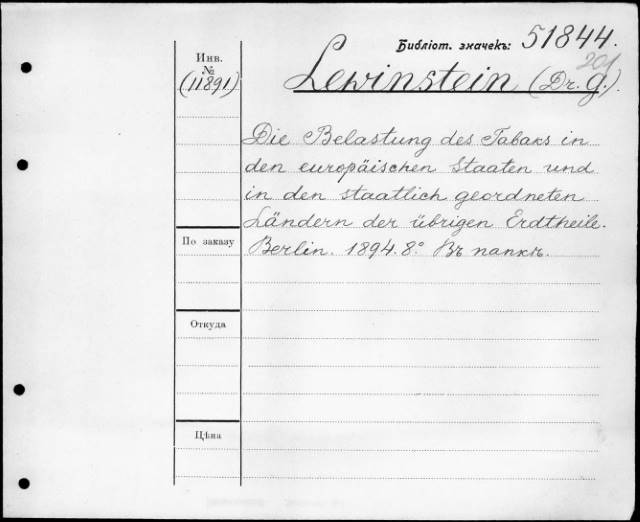 Библіот. значекъ: 51844.
201
Инв.
№
(11891)
Lewinstein (Dr. G.).
Die Belastung des Tabaks in
den europäischen Staaten und
in den staatlich geordneten
Ländern der übrigen Erdtheile.
Berlin. 1894. 8° Въ папкѣ.
По заказу
Откуда
Цѣна